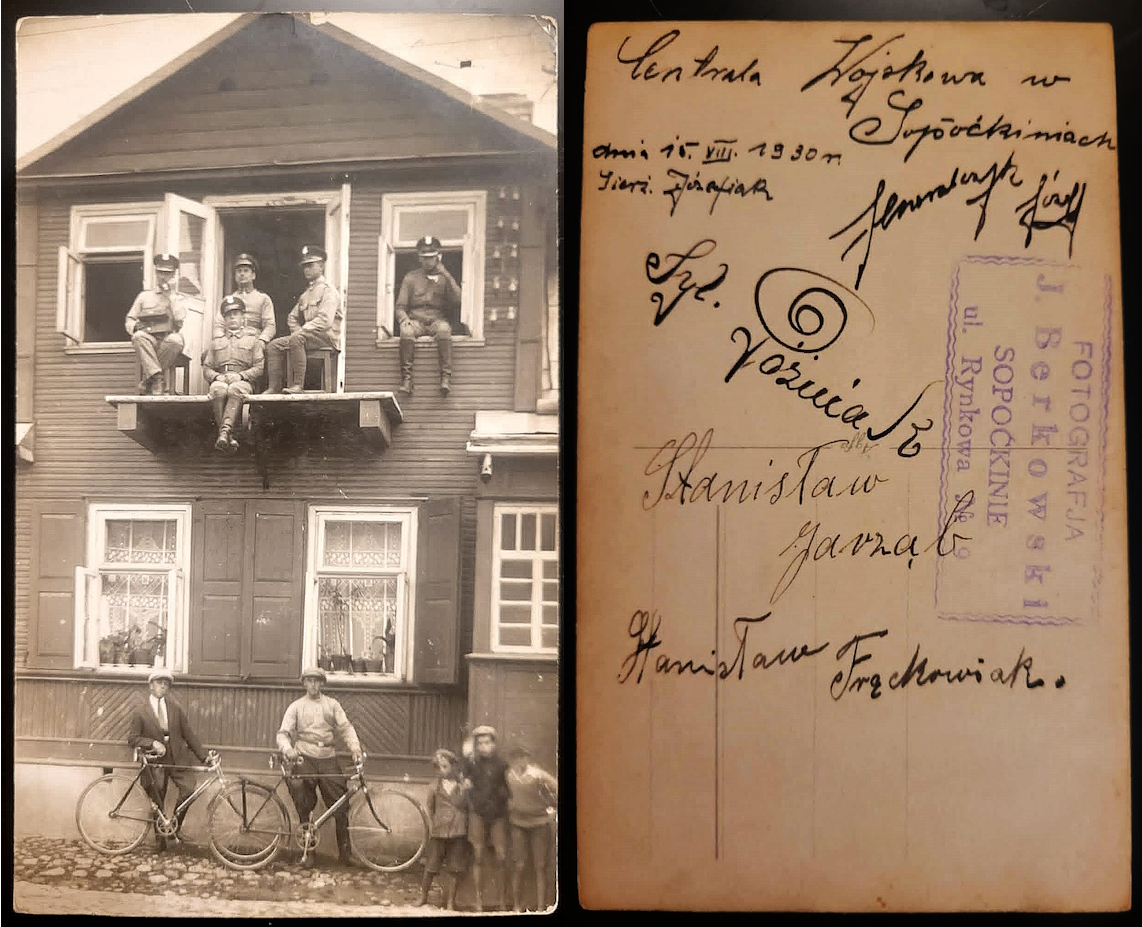 Centrala Wojskowa w
Sopoćkiniach
dnia 15. VIII. 1930 r.
Sierż. Józefiak
Józef
Szl.
Woźniak
Stanisław
Jarząb
Stanisław Frąckowiak.
FOTOGRAFJA
J. Berkowski
SOPOĆKINIE
ul. Rynkowa № 9